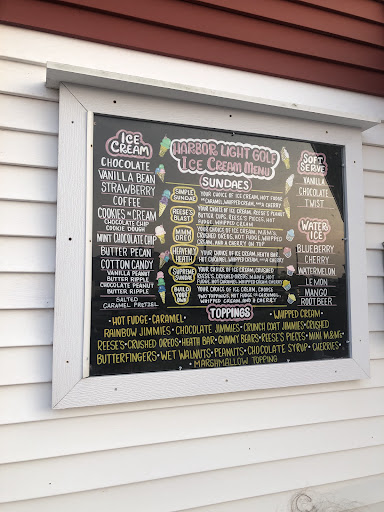 HARBOR LIGHT GOLF
ICE CREAM MENU
ICE
CREAM
CHOCOLATE
VANILLA BEAN
STRAWBERRY
COFFEE
COOKIES IN CREAM
CHOCOLATE CHIP
COOKIE DOUGH
MINT CHOCOLATE CHIP
BUTTER PECAN
COTTON CANDY
VANILLA PEANUT
BUTTER RIPPLE
CHOCOLATE PEANUT
BUTTER RIPPLE
SALTED
CARAMEL PRETZEL
SUNDAES
SIMPLE
SUNDAE
YOUR CHOICE OF ICE CREAM, HOT FUDGE
OR CARAMEL, WHIPPED CREAM, AND A CHERRY
REESE'S
BLAST
YOUR CHOICE OF ICE CREAM, REESE'S PEANUT
BUTTER CUPS, REESE'S PIECES, HOT
FUDGE, WHIPPED CREAM, CHERRY
MMM
OREO
YOUR CHOICE OF ICE CREAM, M&M'S,
CRUSHED OREOS, HOT FUDGE, WHIPPED
CREAM, AND A CHERRY ON TOP
HEAVENLY
HEATH
YOUR CHOICE OF ICE CREAM, HEATH BAR,
HOT CARAMEL, WHIPPED CREAM, CHERRY
SUPREME
SUNDAE
YOUR CHOICE OF ICE CREAM, CRUSHED
REESE'S, CRUSHED OREOS, M&M'S, HOT
FUDGE, HOT CARAMEL, WHIPPED CREAM, CHERRY
BUILD
YOUR
YOUR CHOICE OF ICE CREAM, CHOICE
TWO TOPPINGS, HOT FUDGE OR CARAMEL,
WHIPPED CREAM, AND A CHERRY
SOFT
SERVE
VANILLA
CHOCOLATE
TWIST
WATER
ICE
BLUEBERRY
CHERRY
WATERMELON
LEMON
MANGO
ROOT BEER
TOPPINGS
• HOT FUDGE • CARAMEL • WHIPPED CREAM •
RAINBOW JIMMIES • CHOCOLATE JIMMIES • CRUNCH COAT JIMMIES • CRUSHED
REESE'S • CRUSHED OREOS • HEATH BAR • GUMMY BEARS • REESE'S PIECES • MINI M&MS •
BUTTERFINGERS • WET WALNUTS • PEANUTS • CHOCOLATE SYRUP • CHERRIES •
• MARSHMALLOW TOPPING